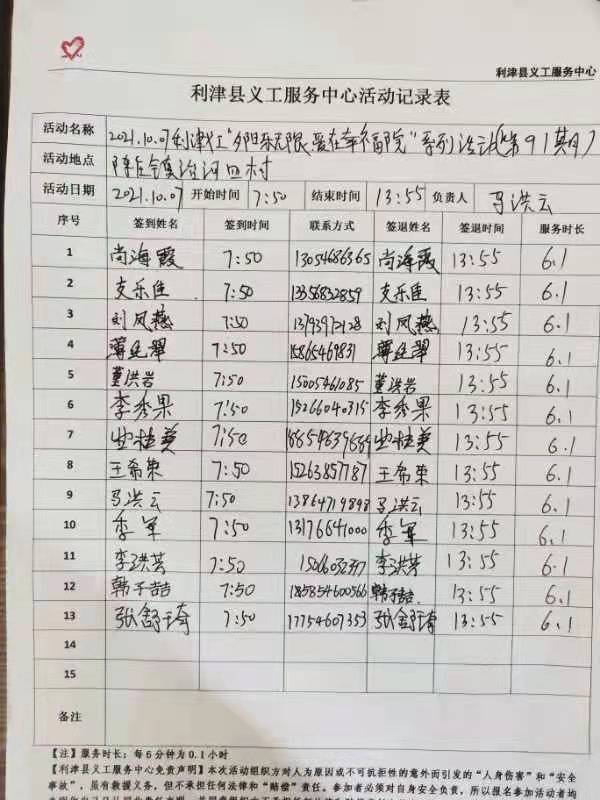 利津县义工服务中心
利津县义工服务中心活动记录表
活动名称 2021.10.07利津义工"夕阳乐无限,爱在幸福院"系列活动(第91期)
活动地点 陈庄镇 河口村
活动日期 2021.10.07 开始时间 7:50 结束时间 13:55 负责人 马洪云
序号 签到姓名 签到时间 联系方式 签退姓名 签退时间 服务时长
1 尚海霞 7:50 13054686365 尚海霞 13:55 6.1
2 支乐佳 7:50 13356832859 支乐佳 13:55 6.1
3 刘凤燕 7:50 刘凤燕 13:55 6.1
4 7:50 15865469831 13:55 6.1
5 董洪岩 7:50 15005461085 董洪岩 13:55 6.1
6 李秀果 7:50 15266040315 李秀果 13:55 6.1
7 桂英 7:50 桂英 13:55 6.1
8 王希荣 7:50 15263857787 王希荣 13:55 6.1
9 马洪云 7:50 13864719898 马洪云 13:55 6.1
10 季军 7:50 13176641000 季军 13:55 6.1
11 李洪芳 7:50 李洪芳 13:55 6.1
12 韩子喆 7:50 18585460056 韩子喆 13:55 6.1
13 张舒琦 7:50 17754607353 张舒琦 13:55 6.1
14
15
备注
【注】服务时长:每6分钟为0.1小时
【利津县义工服务中心免责声明】本次活动组织方对人为原因或不可抗拒性的意外而引发的"人身伤害"和"安全
事故",虽有救援义务,但不承担任何法律和"赔偿"责任。参加者必须对自身安全负责,所以报名参加活动者均